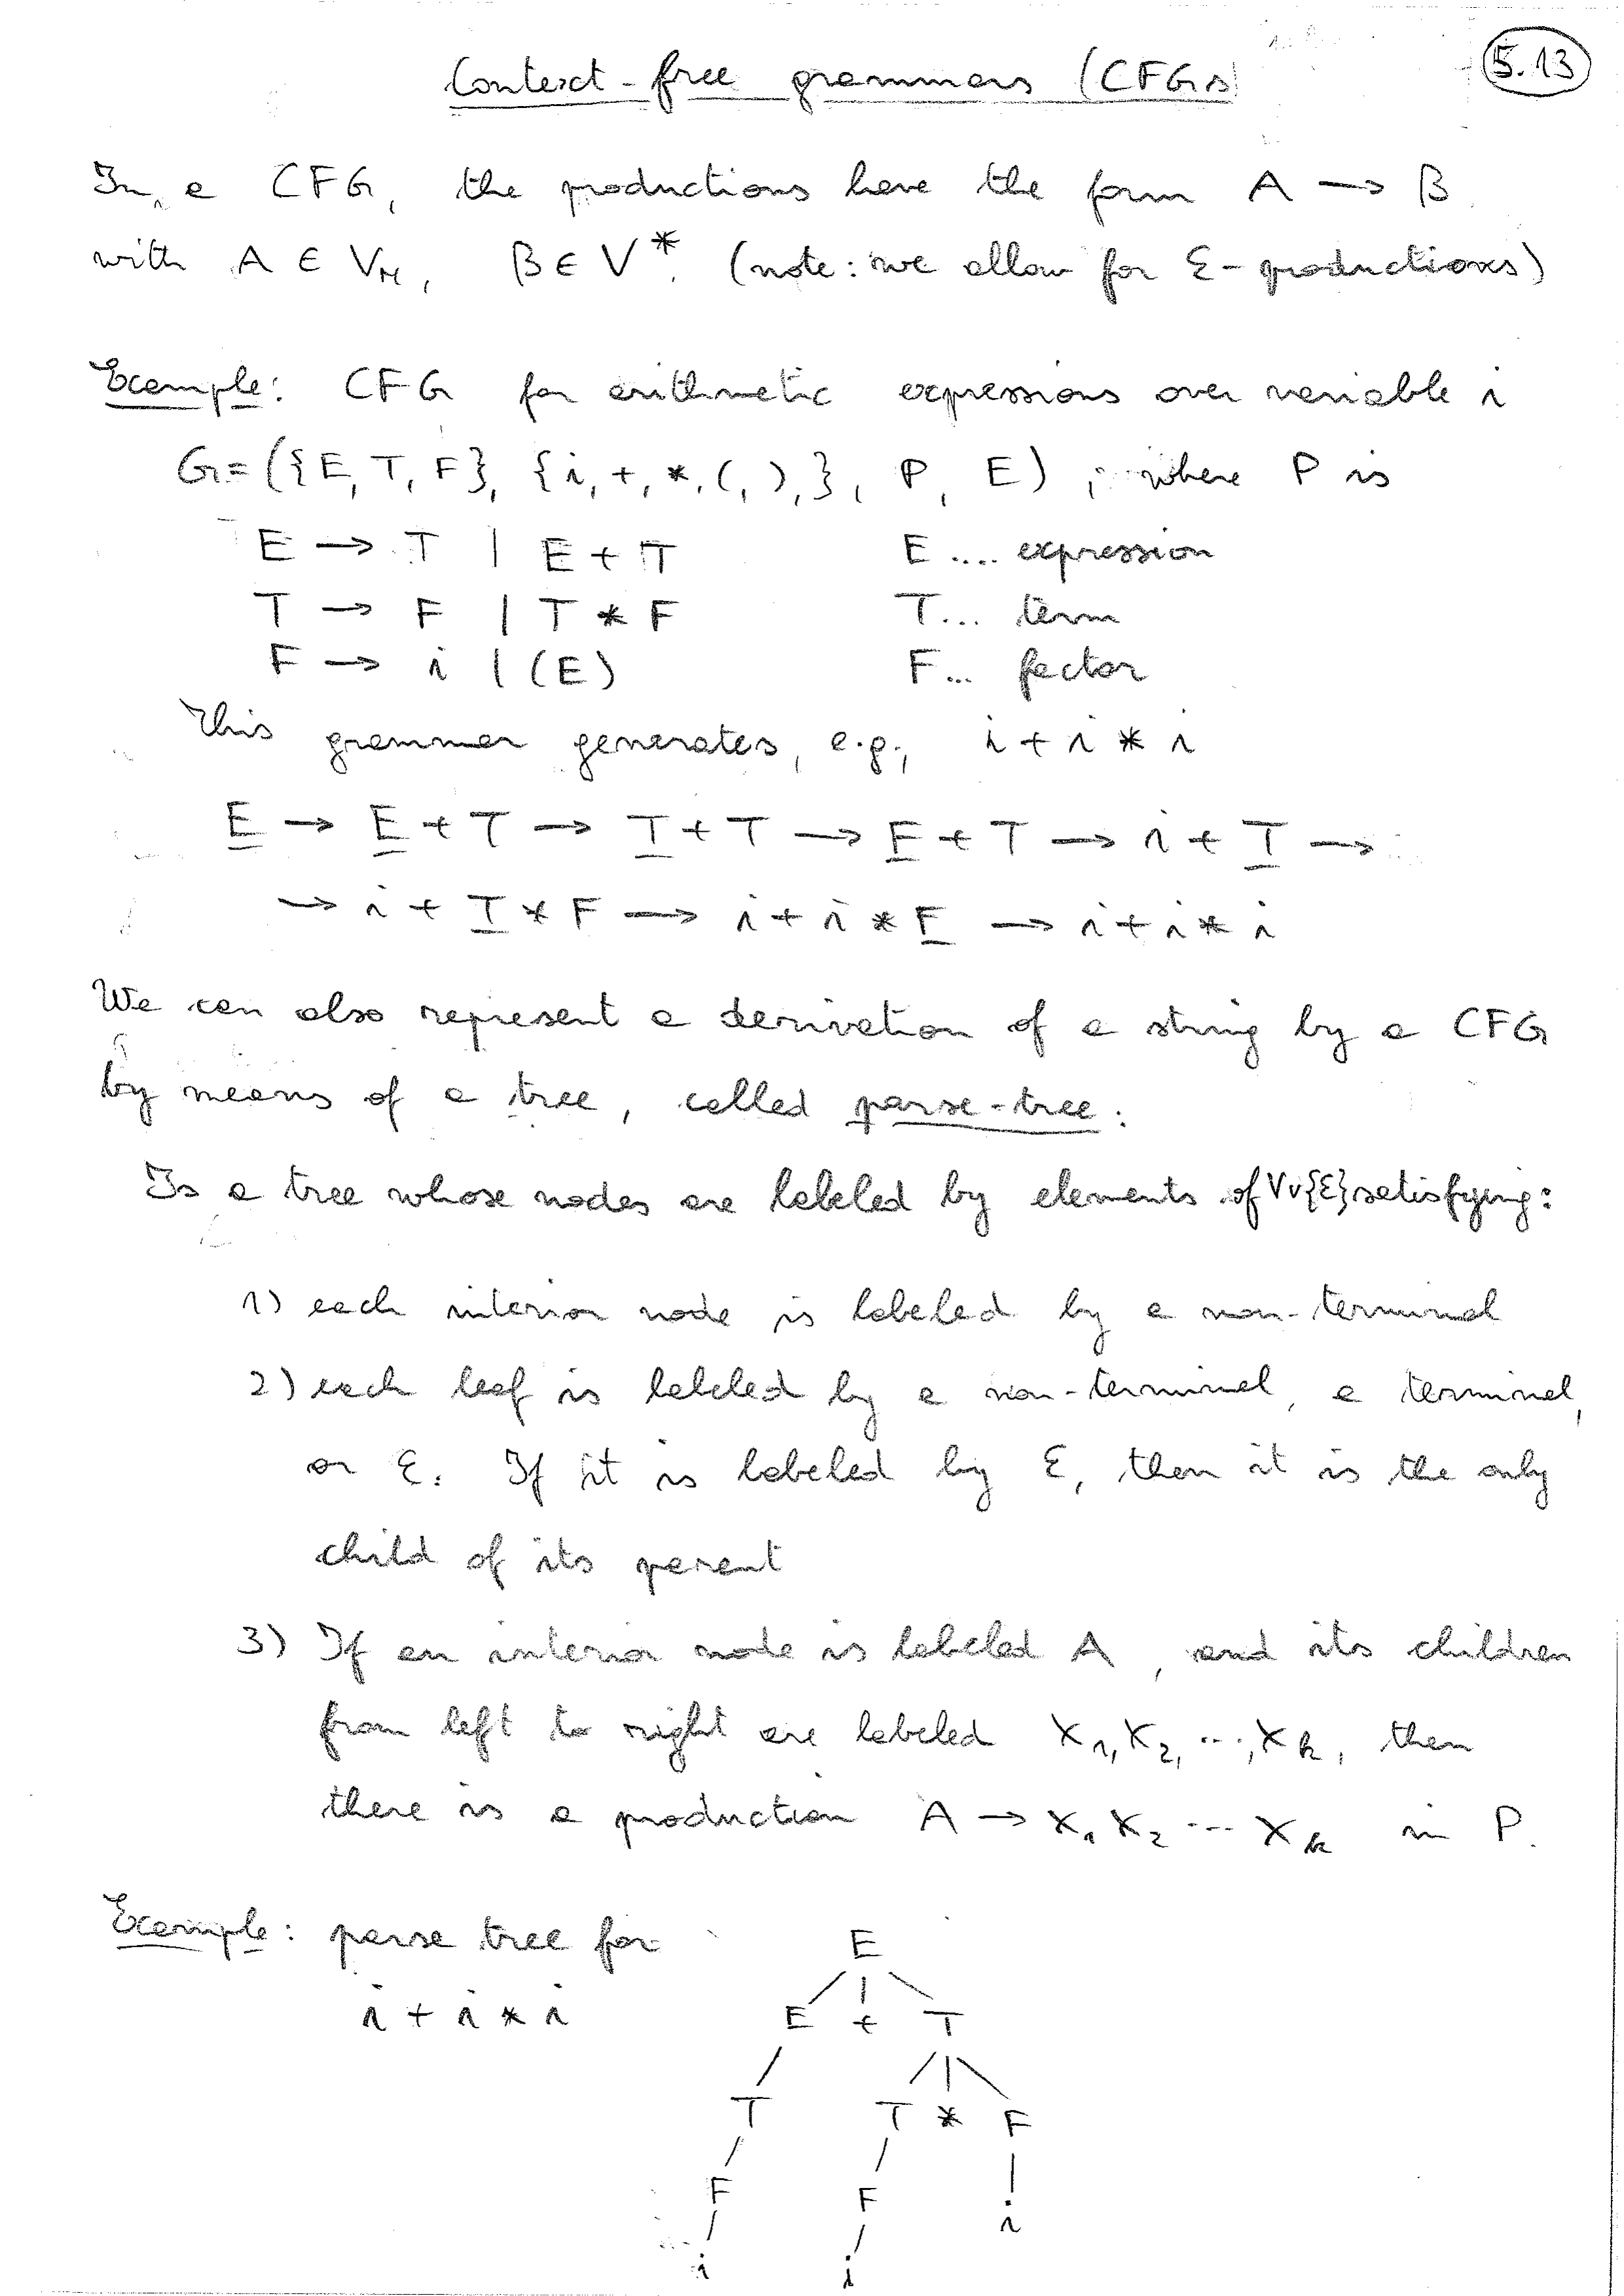 Context-free grammars (CFGs)
5.13
In a CFG, the productions have the form A → β
with A ∈ V_N, β ∈ V*. (note: we allow for ε-productions)
Example: CFG for arithmetic expressions over variable i
G = ({E, T, F}, {i, +, *, (, ), }, P, E), where P is
E → T | E + T E .... expression
T → F | T * F T... term
F → i | (E) F... factor
This grammar generates, e.g., i + i * i
E → E + T → T + T → F + T → i + T →
→ i + T * F → i + i * F → i + i * i
We can also represent a derivation of a string by a CFG
by means of a tree, called parse-tree:
Is a tree whose nodes are labeled by elements of V∪{ε} satisfying:
1) each interior node is labeled by a non-terminal
2) each leaf is labeled by a non-terminal, a terminal,
or ε. If it is labeled by ε, then it is the only
child of its parent
3) If an interior node is labeled A, and its children
from left to right are labeled X₁, X₂, ..., X_k, then
there is a production A → X₁ X₂ ... X_k in P.
Example: parse tree for
i + i * i
E
E + T
T T * F
F F i
i i